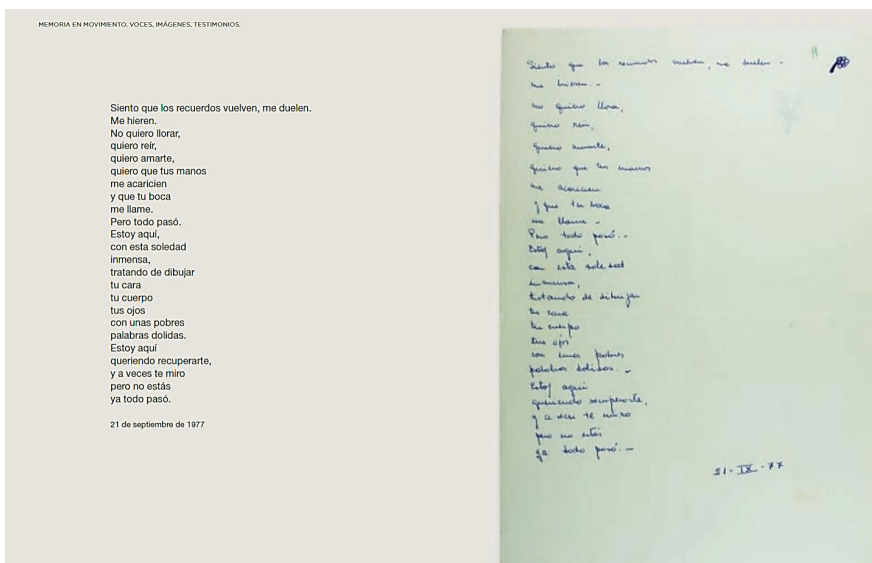 MEMORIA EN MOVIMIENTO, VOCES, IMÁGENES, TESTIMONIOS.
Siento que los recuerdos vuelven, me duelen.
Me hieren.
No quiero llorar,
quiero reír,
quiero amarte,
quiero que tus manos
me acaricien
y que tu boca
me llame.
Pero todo pasó.
Estoy aquí,
con esta soledad
inmensa,
tratando de dibujar
tu cara
tu cuerpo
tus ojos
con unas pobres
palabras dolidas.
Estoy aquí
queriendo recuperarte,
y a veces te miro
pero no estás
ya todo pasó.
21 de septiembre de 1977
Siento que los recuerdos vuelven, me duelen.-
me hieren.-
no quiero llorar,
quiero reir,
quiero amarte,
quiero que tus manos
me acaricien
y que tu boca
me llame.-
Pero todo pasó.-
Estoy aquí,
con esta soledad
inmensa,
tratando de dibujar
tu cara
tu cuerpo
tus ojos
con unas pobres
palabras dolidas.-
Estoy aquí
queriendo recuperarte,
y a veces te miro
pero no estás
ya todo pasó.-
21-IX-77